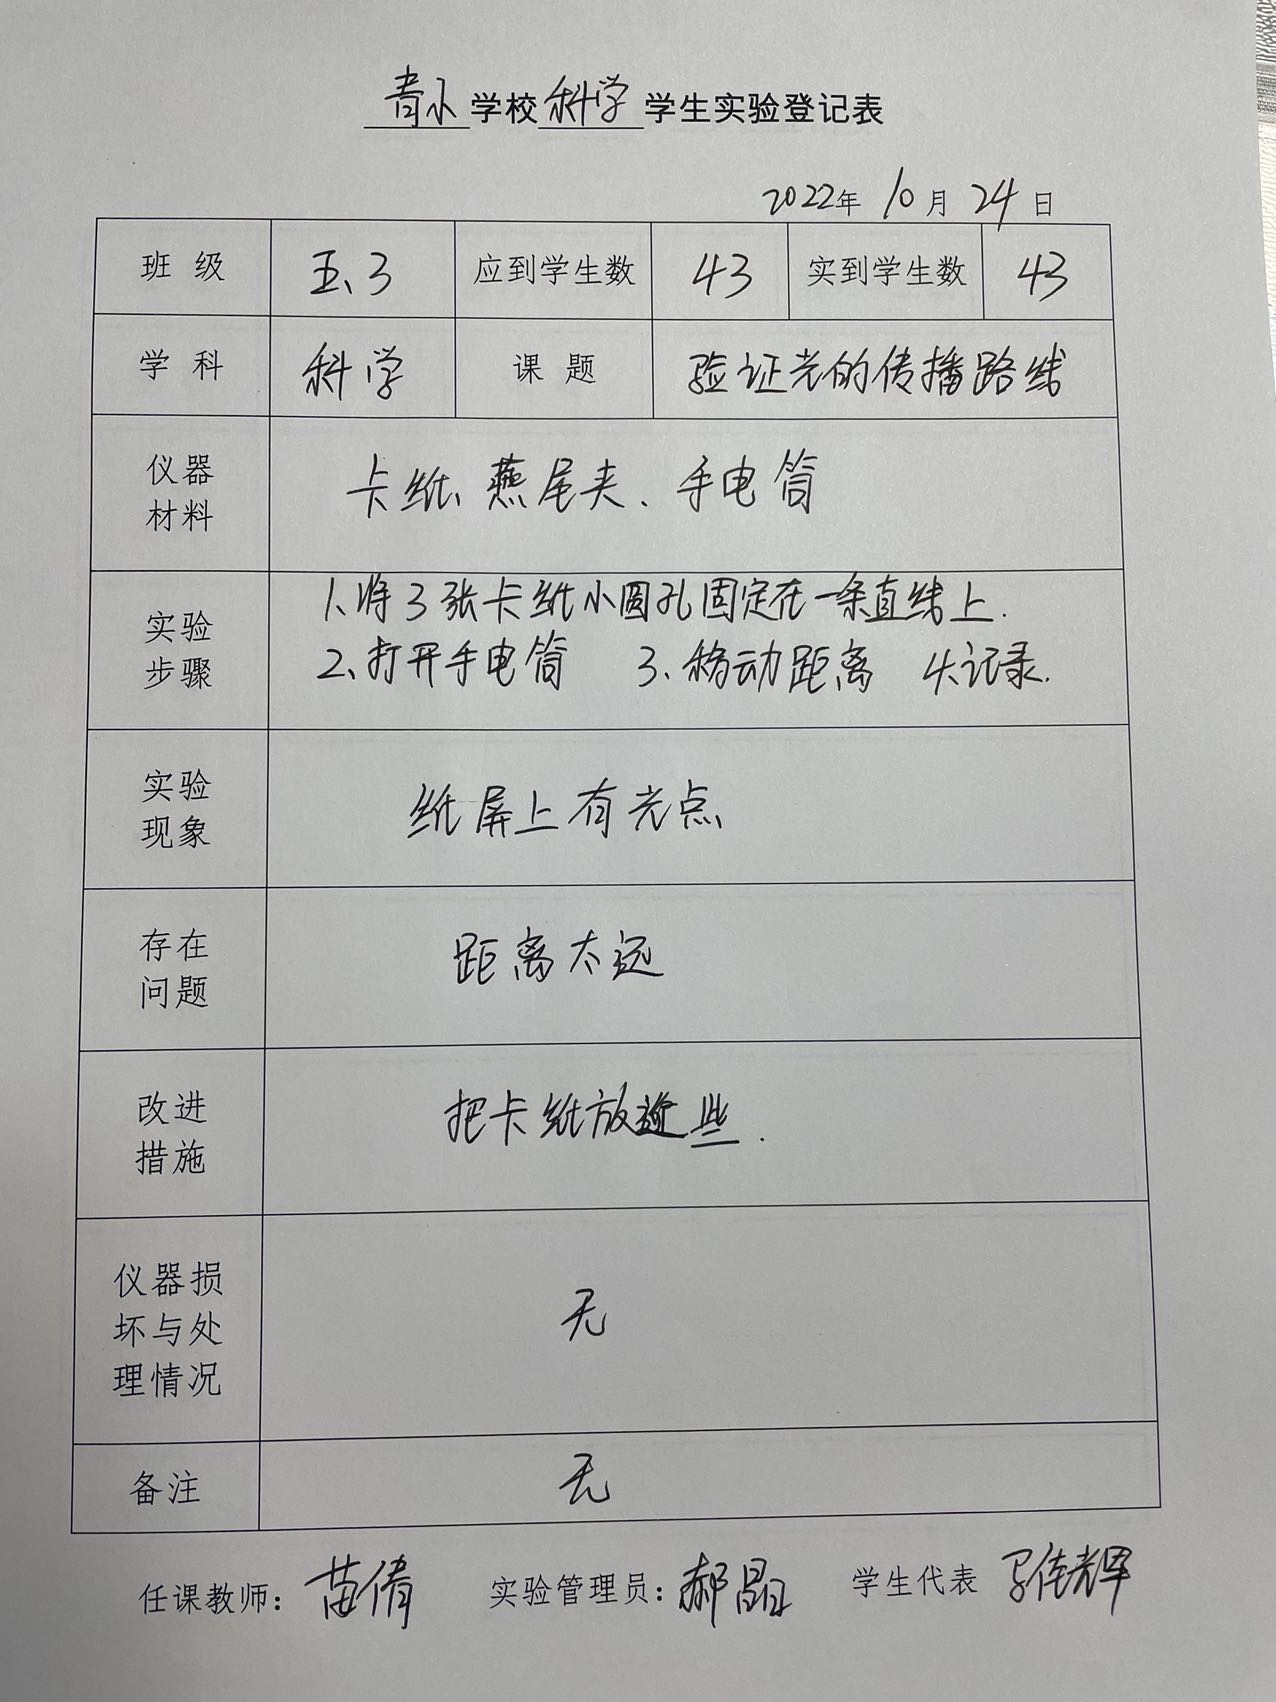 青小学校科学学生实验登记表
2022年10月24日
班级 五、3 应到学生数 43 实到学生数 43
学科 科学 课题 验证光的传播路线
仪器
材料
卡纸、燕尾夹、手电筒
实验
步骤
1、将3张卡纸小圆孔固定在一条直线上.
2、打开手电筒 3、移动距离 4、记录.
实验
现象
纸屏上有光点
存在
问题
距离太远
改进
措施
把卡纸放近些.
仪器损
坏与处
理情况
无
备注 无
任课教师：苗倩 实验管理员：郝晶 学生代表